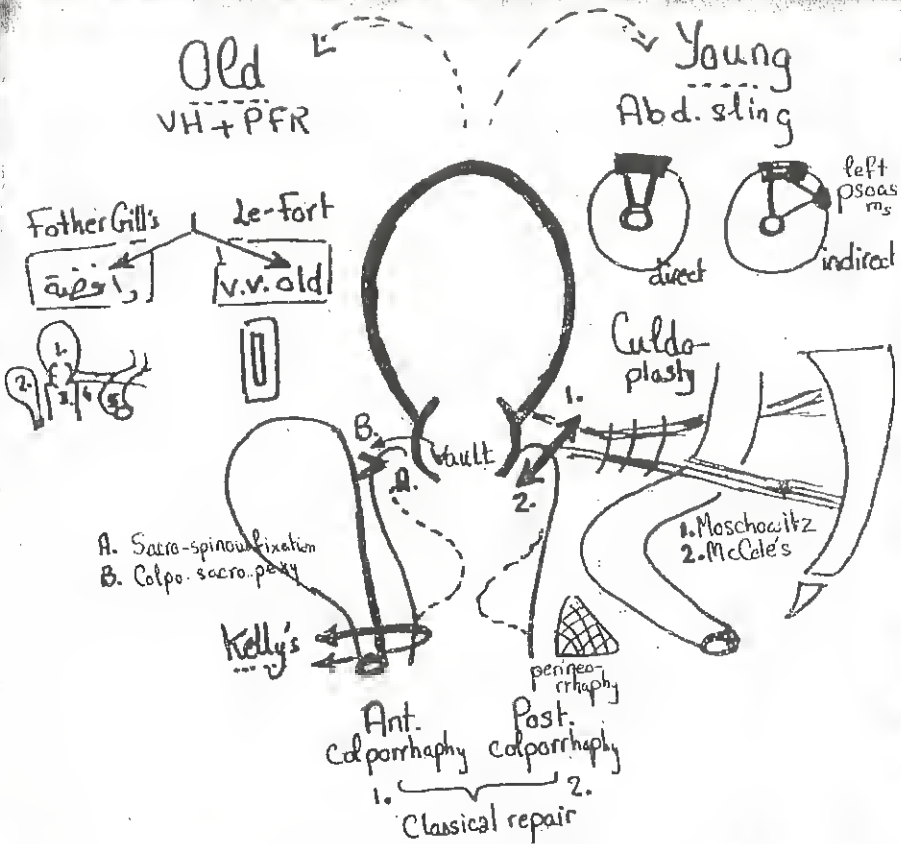 Old
VH + PFR
Young
Abd. sling
left
psoas
ms
direct
indirect
FotherGill's
Le-Fort
v.v. old
1.
2.
3.
4
5
Culdo-
plasty
1.
2.
B.
A.
Vault
A. Sacro-spinous fixation
B. Colpo-sacro-pexy
1. Moschowitz
2. McCole's
Kelly's
perineo-
rrhaphy
Ant.
colporrhaphy
Post.
colporrhaphy
1.
2.
Classical repair